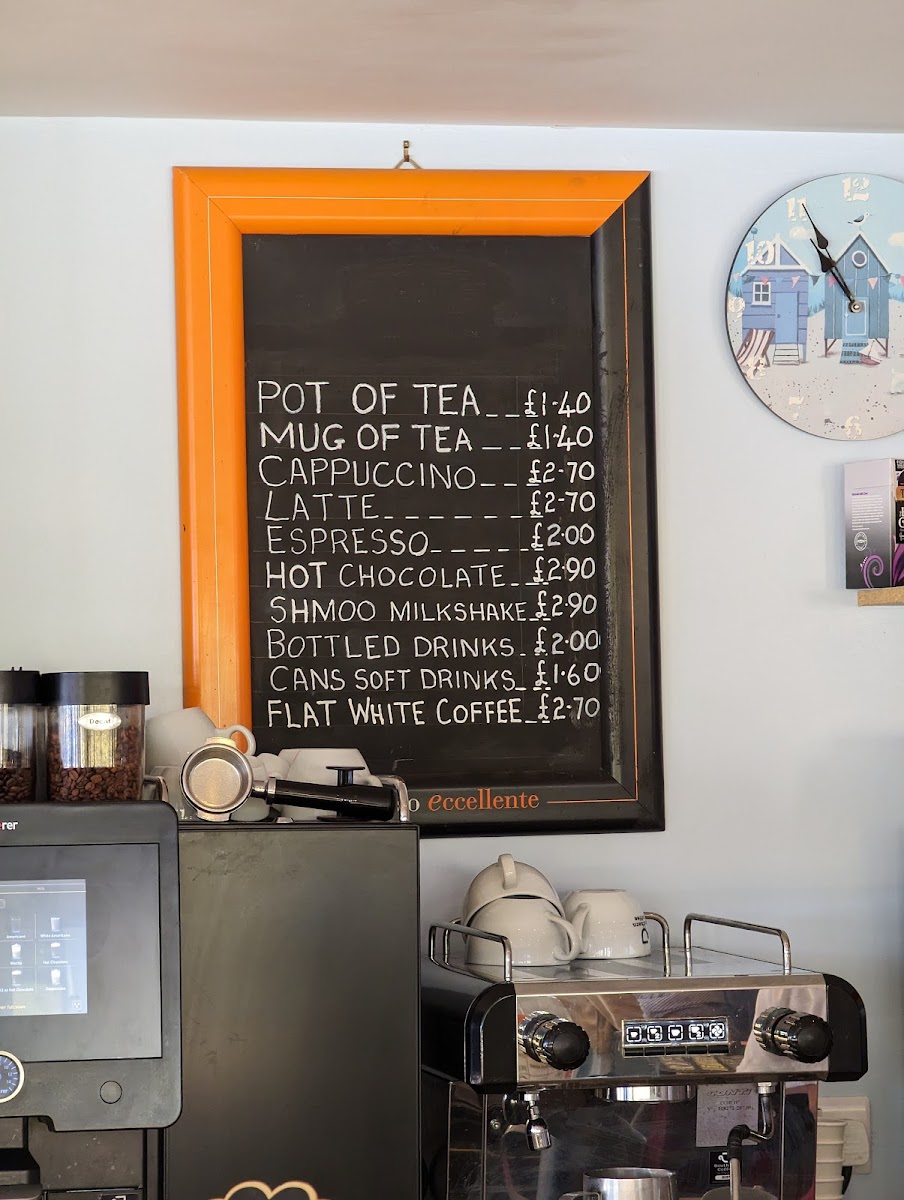 12
11
10
POT OF TEA__£1-40
MUG OF TEA__£1-40
CAPPUCCINO__£2-70
LATTE______£2-70
ESPRESSO_____£2.00
HOT CHOCOLATE__£2.90
SHMOO MILKSHAKE_£2.90
BOTTLED DRINKS_£2.00
CANS SOFT DRINKS_£1.60
FLAT WHITE COFFEE_£2.70
Decaf
eccellente
rer